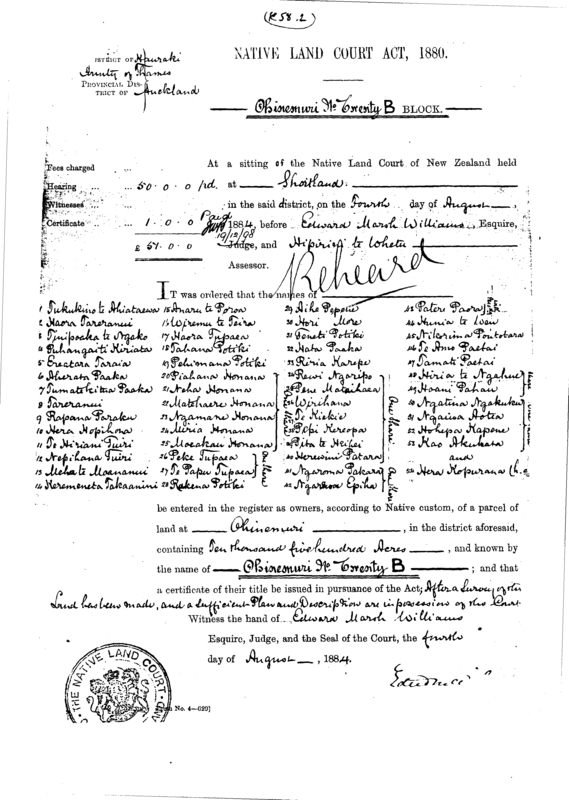 (K 58. 2)
NATIVE LAND COURT ACT, 1880.
DISTRICT OF Hauraki
County of Thames
PROVINCIAL DIS-
TRICT OF Auckland
Ohinemuri No Twenty B BLOCK.
At a sitting of the Native Land Court of New Zealand held
Fees charged
Hearing 50. 0. 0 pd. at Shortland
Witnesses in the said district, on the Fourth day of August,
Certificate 1. 0. 0 Paid 1884, before Edward Marsh Williams, Esquire,
£ 51. 0. 0 19/12/98 Judge, and Hipirini te Whetu
Assessor.
Reheard
IT was ordered that the names of
1 Tukukino te Ahiataewa
2 Haora Tareranui
4 Puhangaiti Hiriata
5 Eruatara Taraia
6 Aherata Paaka
8 Tareranui
9 Rapana Paraku
10 Hera Hopihona
11 Te Hiriani Tuiri
12 Nepihana Tuiri
13 Meha te Moananui
14 Keremeneta Takaanini
15 Anaru te Poroa
16 Wiremu te Teira
17 Haora Tupaea
18 Tahana Potiki
20 Piahana Honana
21 Noha Honana
22 Matehaere Honana
23 Ngamane Honana
24 Miria Honana
25 Moeakau Honana
26 Peke Tupaea
27 Te Papu Tupaea
28 Rakena Potiki
One Share
30 Hori More
32 Hata Paaka
33 Riria Karepe
34 Rewi Ngaripo
36 Wirihana
37 Te Kiekie
38 Popi Kereopa
40 Herewini Patara
41 Ngaroma Pakara
42 Ngarama Epiha
One Share
One Share
43 Pateri Paora
46 Te Amo Paetai
47 Tamati Paetai
48 Hiria te Ngahue
49 Hoani Pahau
50 Ngatina Ngakuku
51 Ngaina Aotea
52 Hohepa Kapene
53 Kao Akuhata
and
54 Hera Kopurana
be entered in the register as owners, according to Native custom, of a parcel of
land at Ohinemuri, in the district aforesaid,
containing Ten thousand five hundred Acres, and known by
the name of Ohinemuri No. Twenty B; and that
a certificate of their title be issued in pursuance of the Act; After a Survey of the
Land has been made, and a sufficient Plan and Description are in possession of the Court
Witness the hand of Edward Marsh Williams
Esquire, Judge, and the Seal of the Court, the fourth
day of August, 1884.
THE NATIVE LAND COURT
No. 4—629]